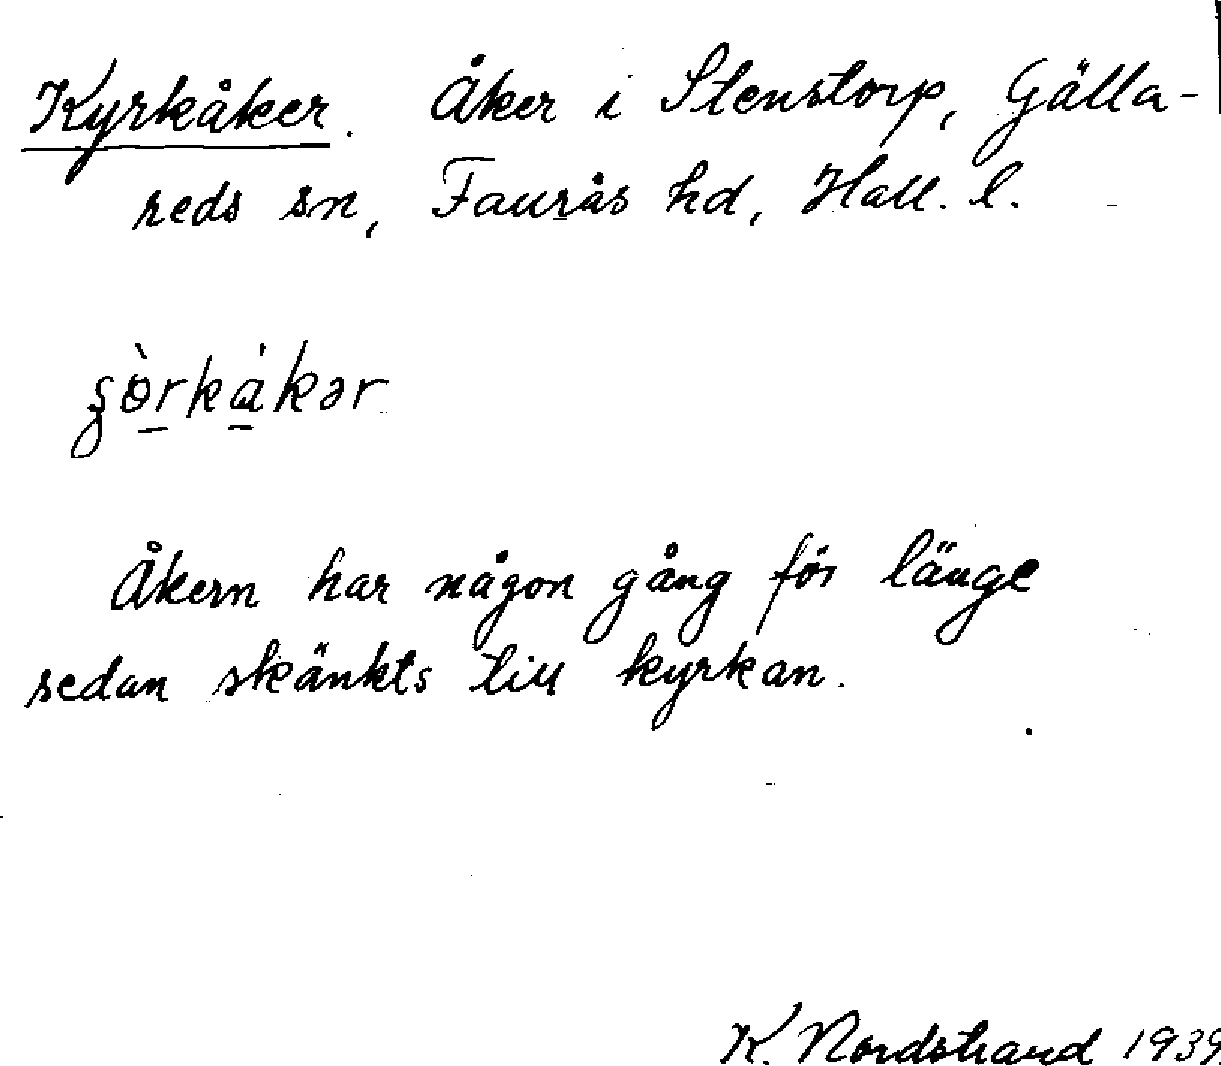 Kyrkåker. Åker i Stenstorp, Gälla-
reds sn, Faurås hd, Hall. l.
Åkern har någon gång för länge
sedan skänkts till kyrkan.
K. Nordstrand 1939.